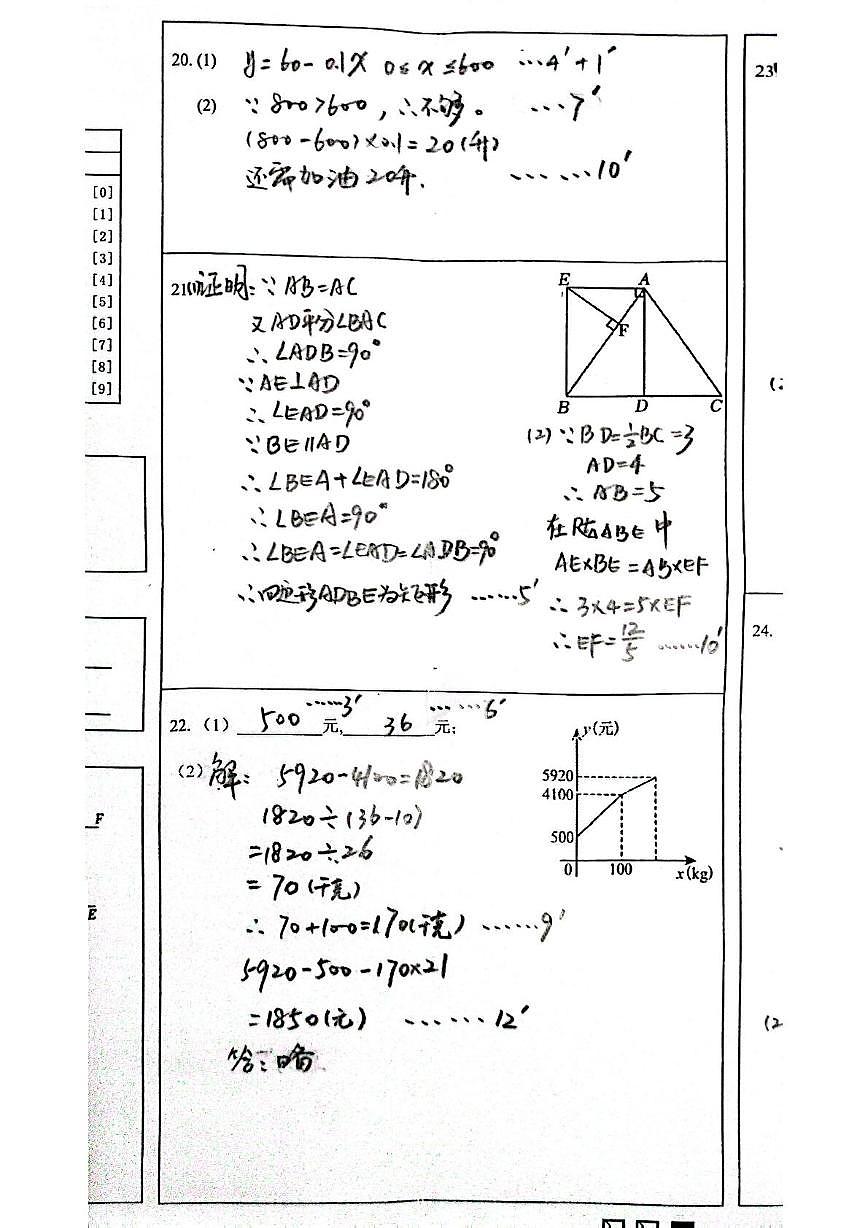 20.(1) y=60-0.1x 0≤x≤600 …4′+1′
(2) ∵800>600,∴不够。 …7′
(800-600)×0.1=20(升)
还需加油20升. ……10′
[0]
[1]
[2]
[3]
[4]
[5]
[6]
[7]
[8]
[9]
21.(1)证明:∵AB=AC
又AD平分∠BAC
∴∠ADB=90°
∵AE⊥AD
∴∠EAD=90°
∵BE∥AD
∴∠BEA+∠EAD=180°
∴∠BEA=90°
∴∠BEA=∠EAD=∠ADB=90°
∴四边形ADBE为矩形 ……5′
E A
F
B D C
(2)∵BD=½BC=3
AD=4
∴AB=5
在Rt△ABE中
AE×BE=AB×EF
∴3×4=5×EF
∴EF=12/5 ……10′
22.(1) 500 元, ……3′ 36 元; ……6′
(2)解: 5920-4100=1820
1820÷(36-10)
=1820÷26
=70(千克)
∴70+100=170(千克) ……9′
5920-500-170×21
=1850(元) ……12′
答:略
y(元)
5920
4100
500
0 100 x(kg)
F
E
23
(2
24.
(2